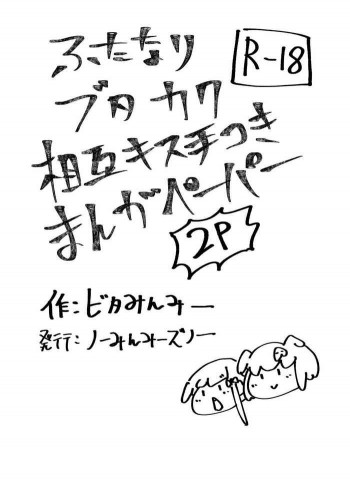 ふたなり
R-18
ブタ カク
相互キス手つき
まんがペーパー
2P
作:ビタみんみー
発行:ノーみんみーズノー